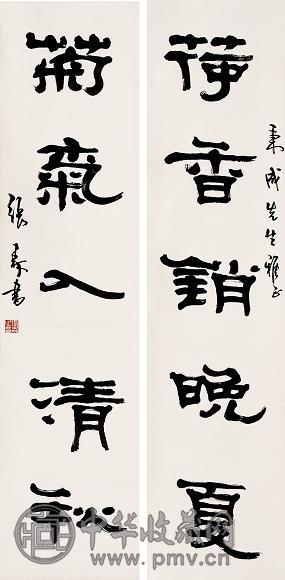 荷香銷晚夏
成先生雅正
菊氣入清秋
張書
中华收藏网
www.pmv.cn